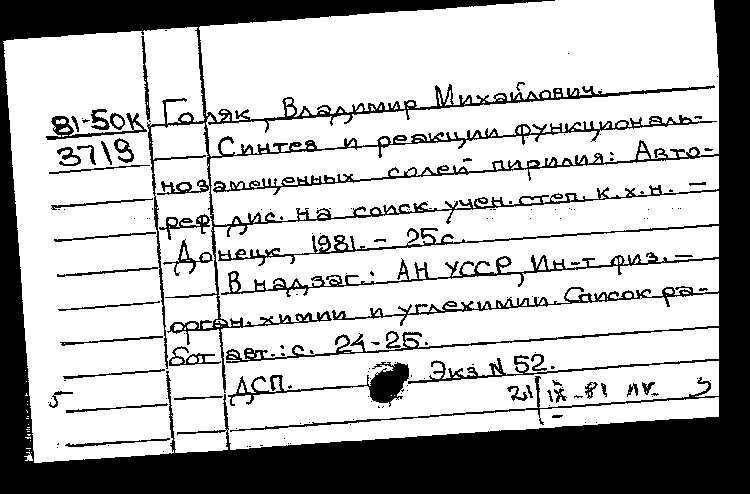 81-50к Голяк, Владимир Михайлович.
3719 Синтез и реакции функциональ-
нозамещенных солей пирилия: Авто-
реф дис. на соиск. учен. степ. к.х.н. –
Донецк, 1981. – 25с.
В надзаг.: АН УССР, Ин-т физ.–
орган. химии и углехимии. Список ра-
бот авт.: с. 24-25.
ДСП. Экз N 52.
5 21/IX-81